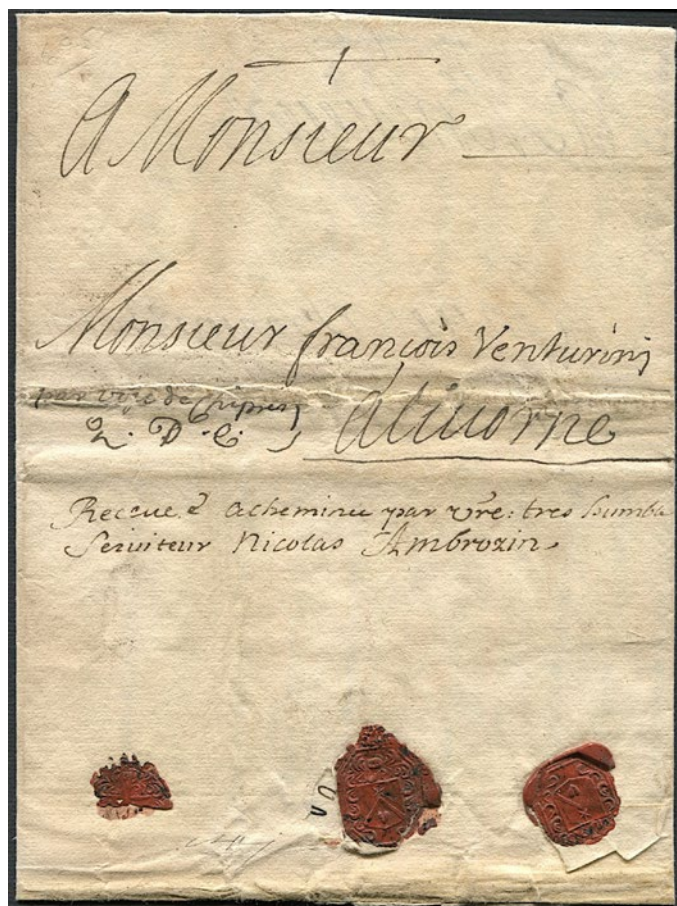 A Monsieur
Monsieur françois Venturinj
par voye de Chipres
Q. D. C. Aliuorne
Receue & acheminee par vre: tres humble
Seruiteur Nicolas Ambrozin